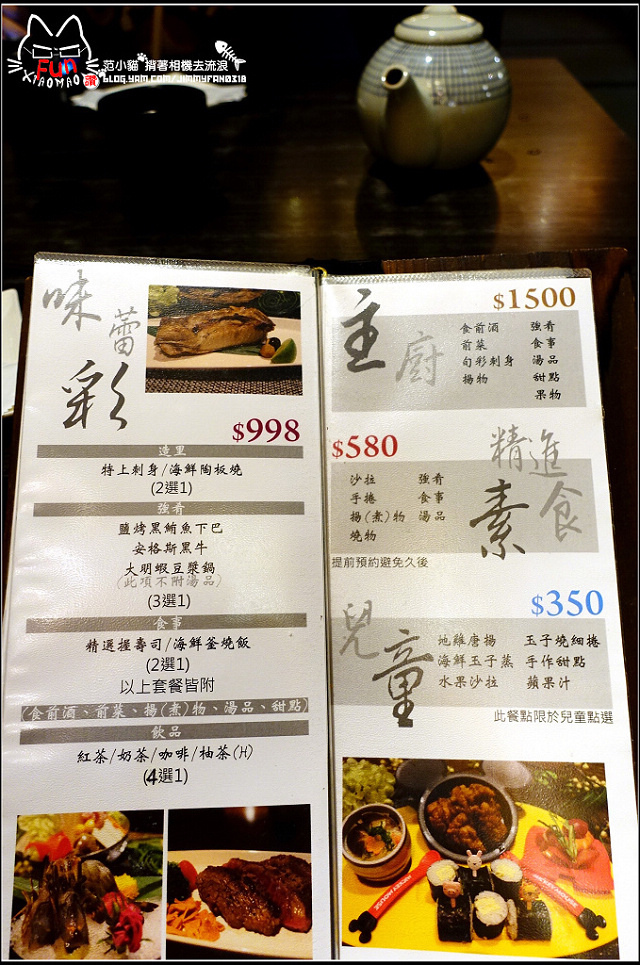 FUN
XIAOMAO
讚
范小貓 揹著相機去流浪
BLOG.YAM.COM/JIMMYFAN0318
味蕾彩
$998
造里
特上刺身/海鮮陶板燒
(2選1)
強肴
鹽烤黑鮪魚下巴
安格斯黑牛
大明蝦豆漿鍋
(此項不附湯品)
(3選1)
食事
精選握壽司/海鮮釜燒飯
(2選1)
以上套餐皆附
(食前酒、前菜、揚(煮)物、湯品、甜點)
飲品
紅茶/奶茶/咖啡/柚茶(H)
(4選1)
主廚
$1500
食前酒 強肴
前菜 食事
旬彩刺身 湯品
揚物 甜點
果物
$580
精進素食
沙拉 強肴
手捲 食事
揚(煮)物 湯品
燒物
提前預約避免久後
$350
兒童
地雞唐揚 玉子燒細捲
海鮮玉子蒸 手作甜點
水果沙拉 蘋果汁
此餐點限於兒童點選